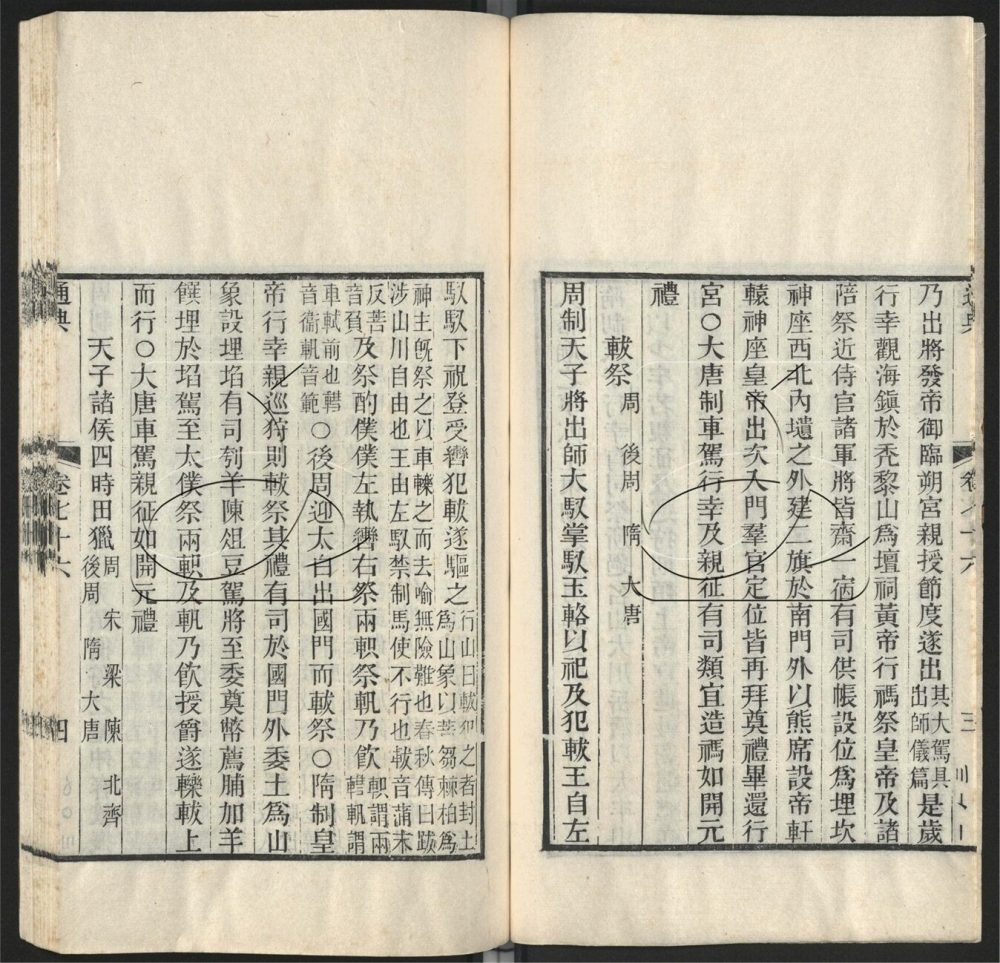 乃出將發帝御臨朔宮親授節度遂出其大駕具出師儀篇是歲
行幸觀海鎭於禿黎山爲壇祠黃帝行禡祭皇帝及諸
陪祭近侍官諸軍將皆齋一宿有司供帳設位爲埋坎
神座西北內壝之外建二旗於南門外以熊席設帝軒
轅神座皇帝出次入門羣官定位皆再拜奠禮畢還行
宮○大唐制車駕行幸及親征有司類宜造禡如開元
禮
軷祭 周 後周 隋 大唐
周制天子將出師大馭掌馭玉輅以祀及犯軷王自左
馭馭下祝登受轡犯軷遂驅之行山曰軷犯之者封土爲山象以菩芻棘柏爲
神主旣祭之以車轢之而去喻無險難也春秋傳曰跋涉山川自由也王由左馭禁制馬使不行也軷音蒲末
反菩音負及祭酌僕僕左執轡右祭兩軹祭軓乃飲軹謂兩轊軓謂
車軾前也轊音衞軓音範○後周迎太白出國門而軷祭○隋制皇
帝行幸親巡狩則軷祭其禮有司於國門外委土爲山
象設埋埳有司刳羊陳俎豆駕將至委奠幣薦脯加羊
饌埋於埳駕至太僕祭兩軹及軓乃飲授爵遂轢軷上
而行○大唐車駕親征如開元禮
天子諸侯四時田獵周 宋 梁 陳 北齊 後周 隋 大唐
通典 卷七十六 四